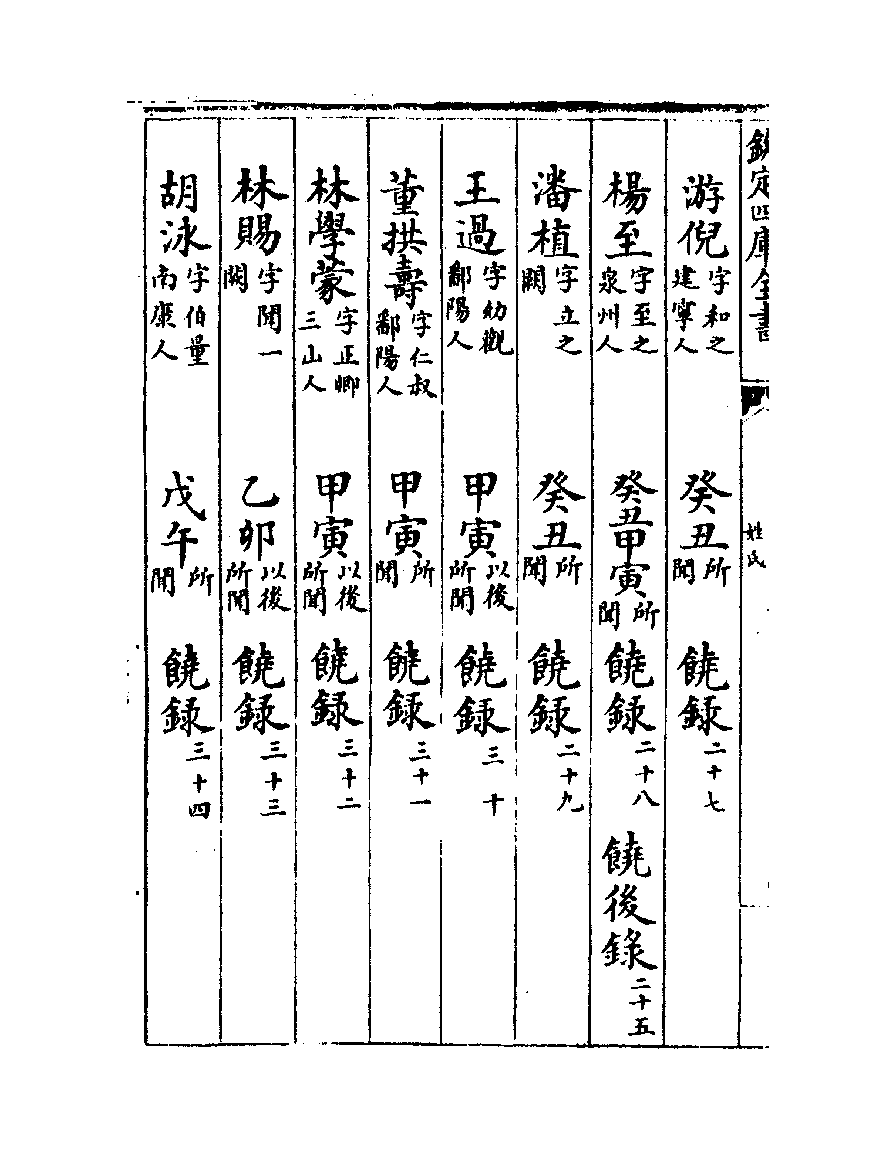 欽定四庫全書 姓氏
游倪字和之建寧人 癸丑所聞 饒録二十七
楊至字至之泉州人 癸丑甲寅所聞 饒録二十八 饒後錄二十五
潘植字立之闕 癸丑所聞 饒録二十九
王過字幼觀鄱陽人 甲寅以後所聞 饒録三十
董拱壽字仁叔鄱陽人 甲寅所聞 饒録三十一
林學蒙字正卿三山人 甲寅以後所聞 饒録三十二
林賜字聞一闕 乙卯以後所聞 饒録三十三
胡泳字伯量南康人 戊午所聞 饒録三十四